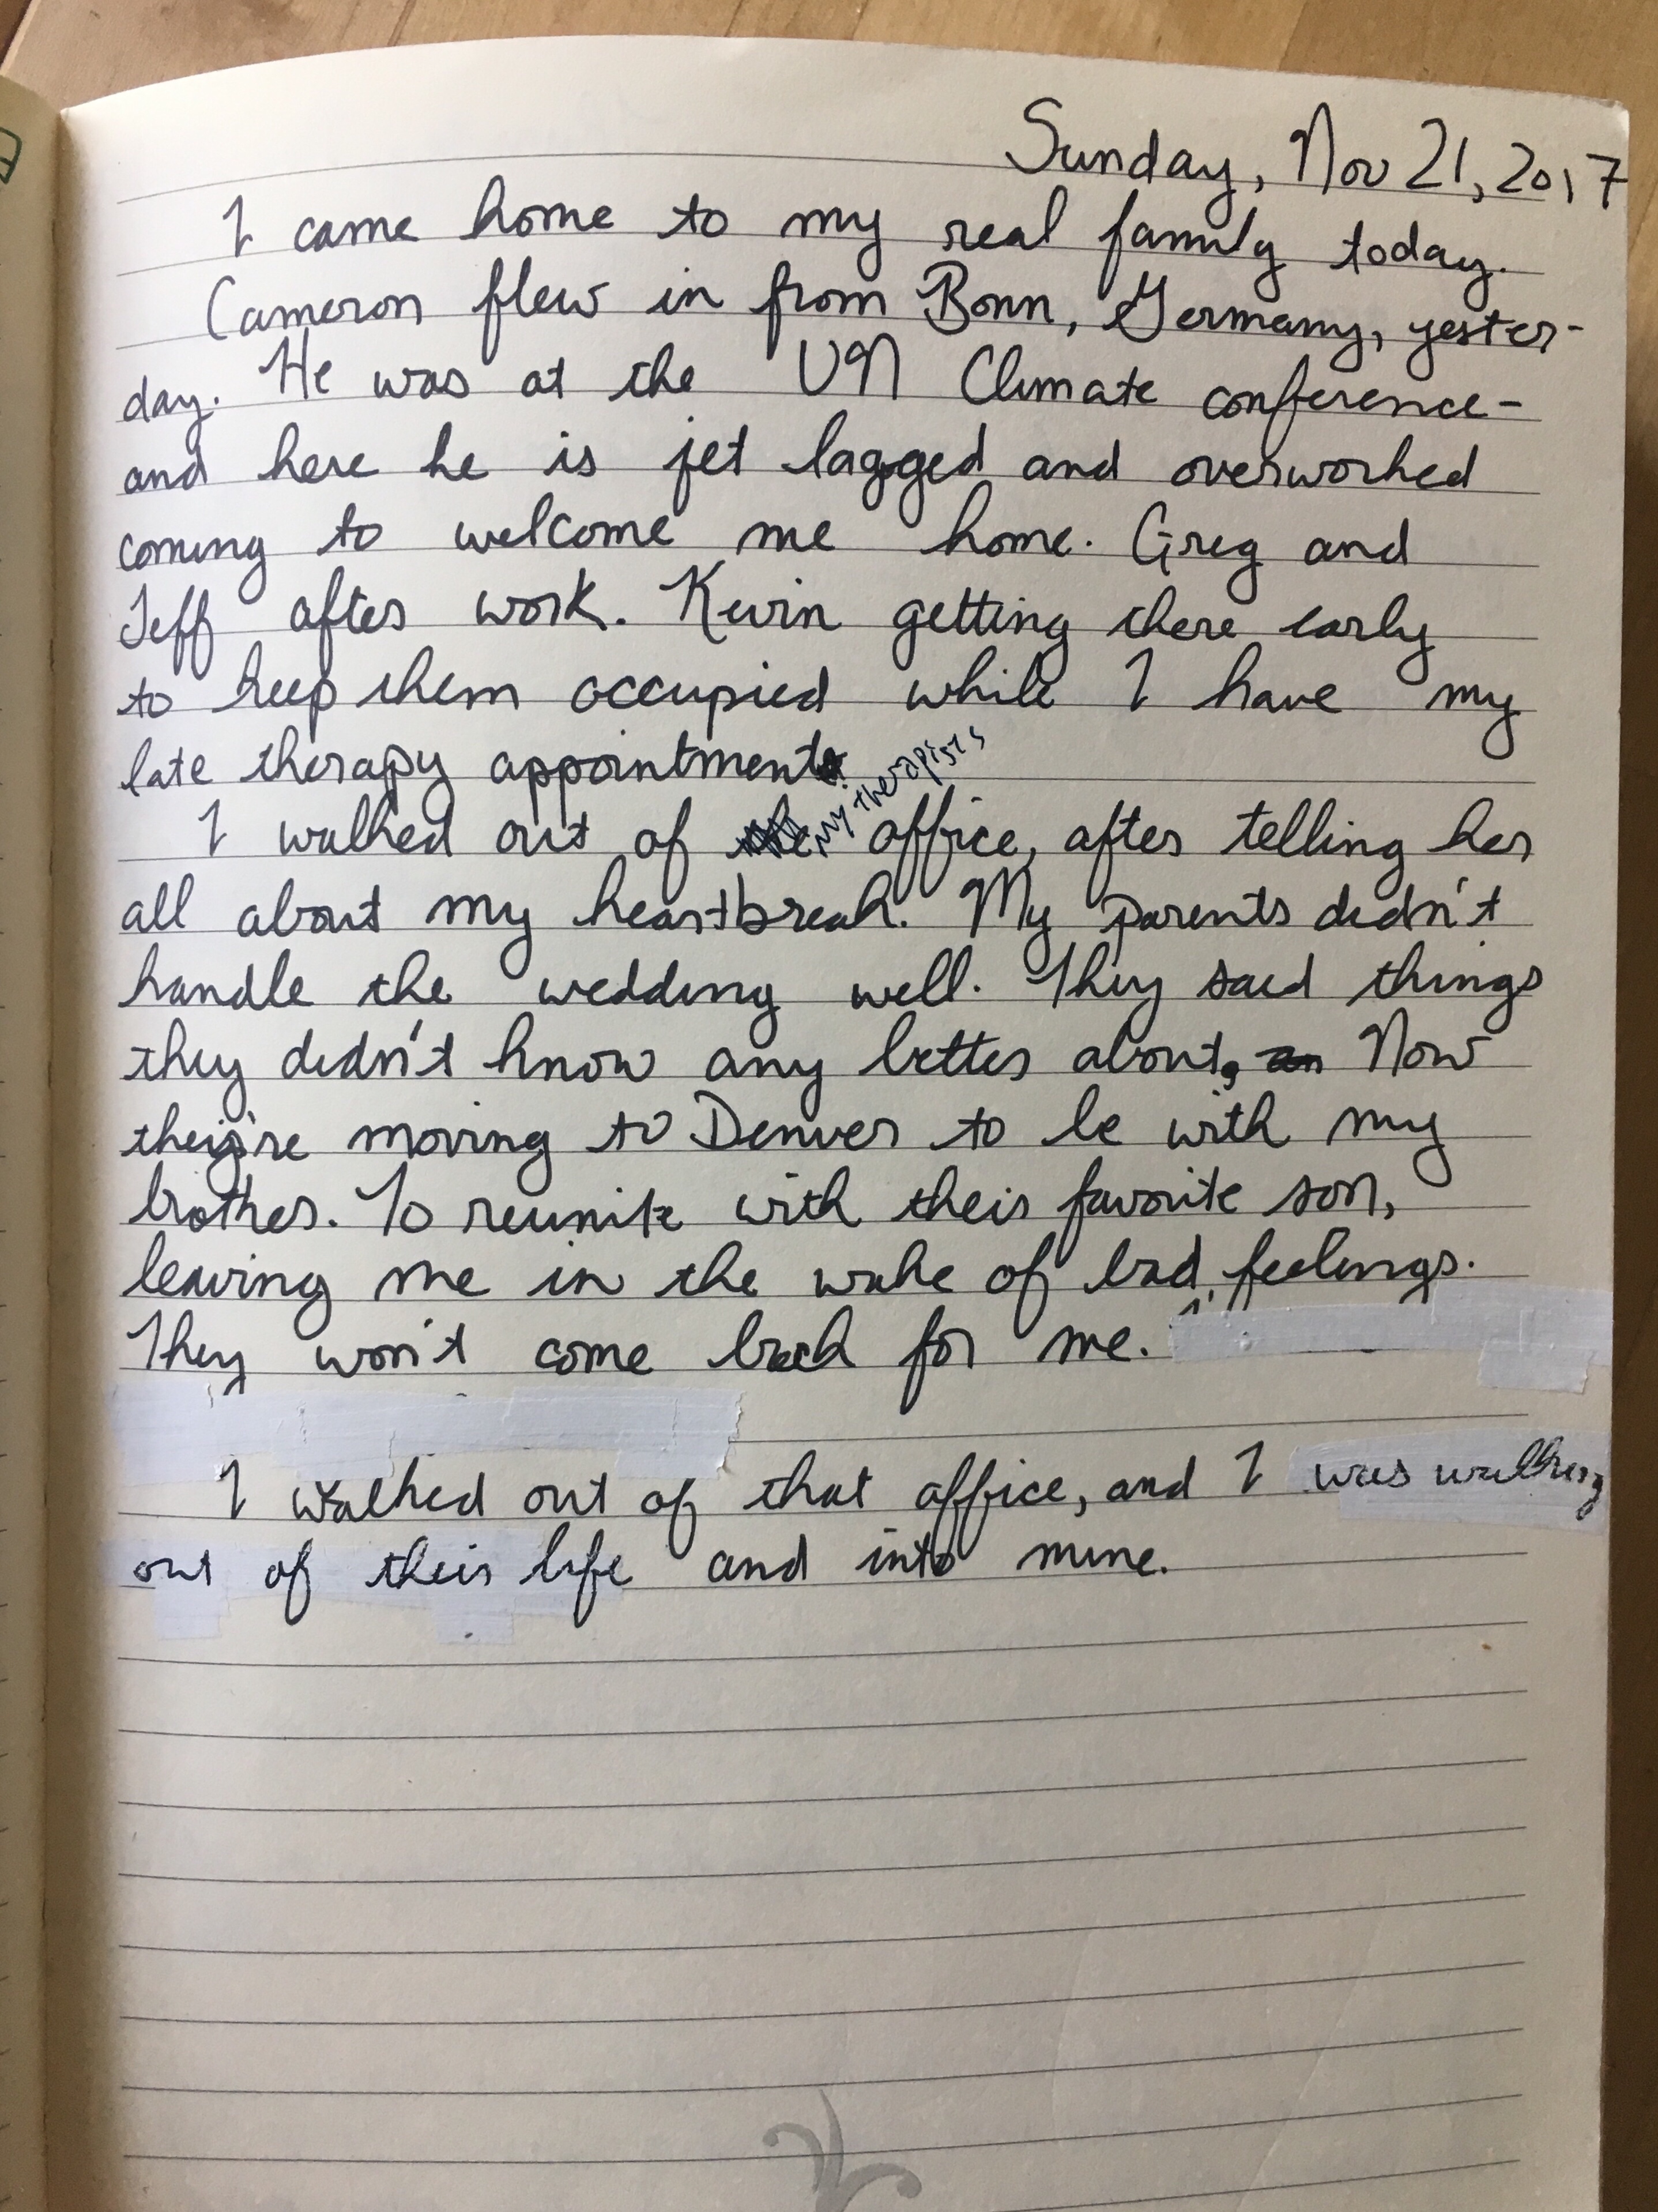 Sunday, Nov 21, 2017
I came home to my real family today.
Cameron flew in from Bonn, Germany, yester-
day. He was at the UN Climate conference-
and here he is jet lagged and overworked
coming to welcome me home. Greg and
Jeff after work. Kevin getting there early
to keep them occupied while I have my
late therapy appointment.
I walked out of my therapists office, after telling her
all about my heartbreak. My parents didn't
handle the wedding well. They said things
they didn't know any better about, Now
they're moving to Denver to be with my
brother. To reunite with their favorite son,
leaving me in the wake of bad feelings.
They won't come back for me.
I walked out of that office, and I was walking
out of their life and into mine.